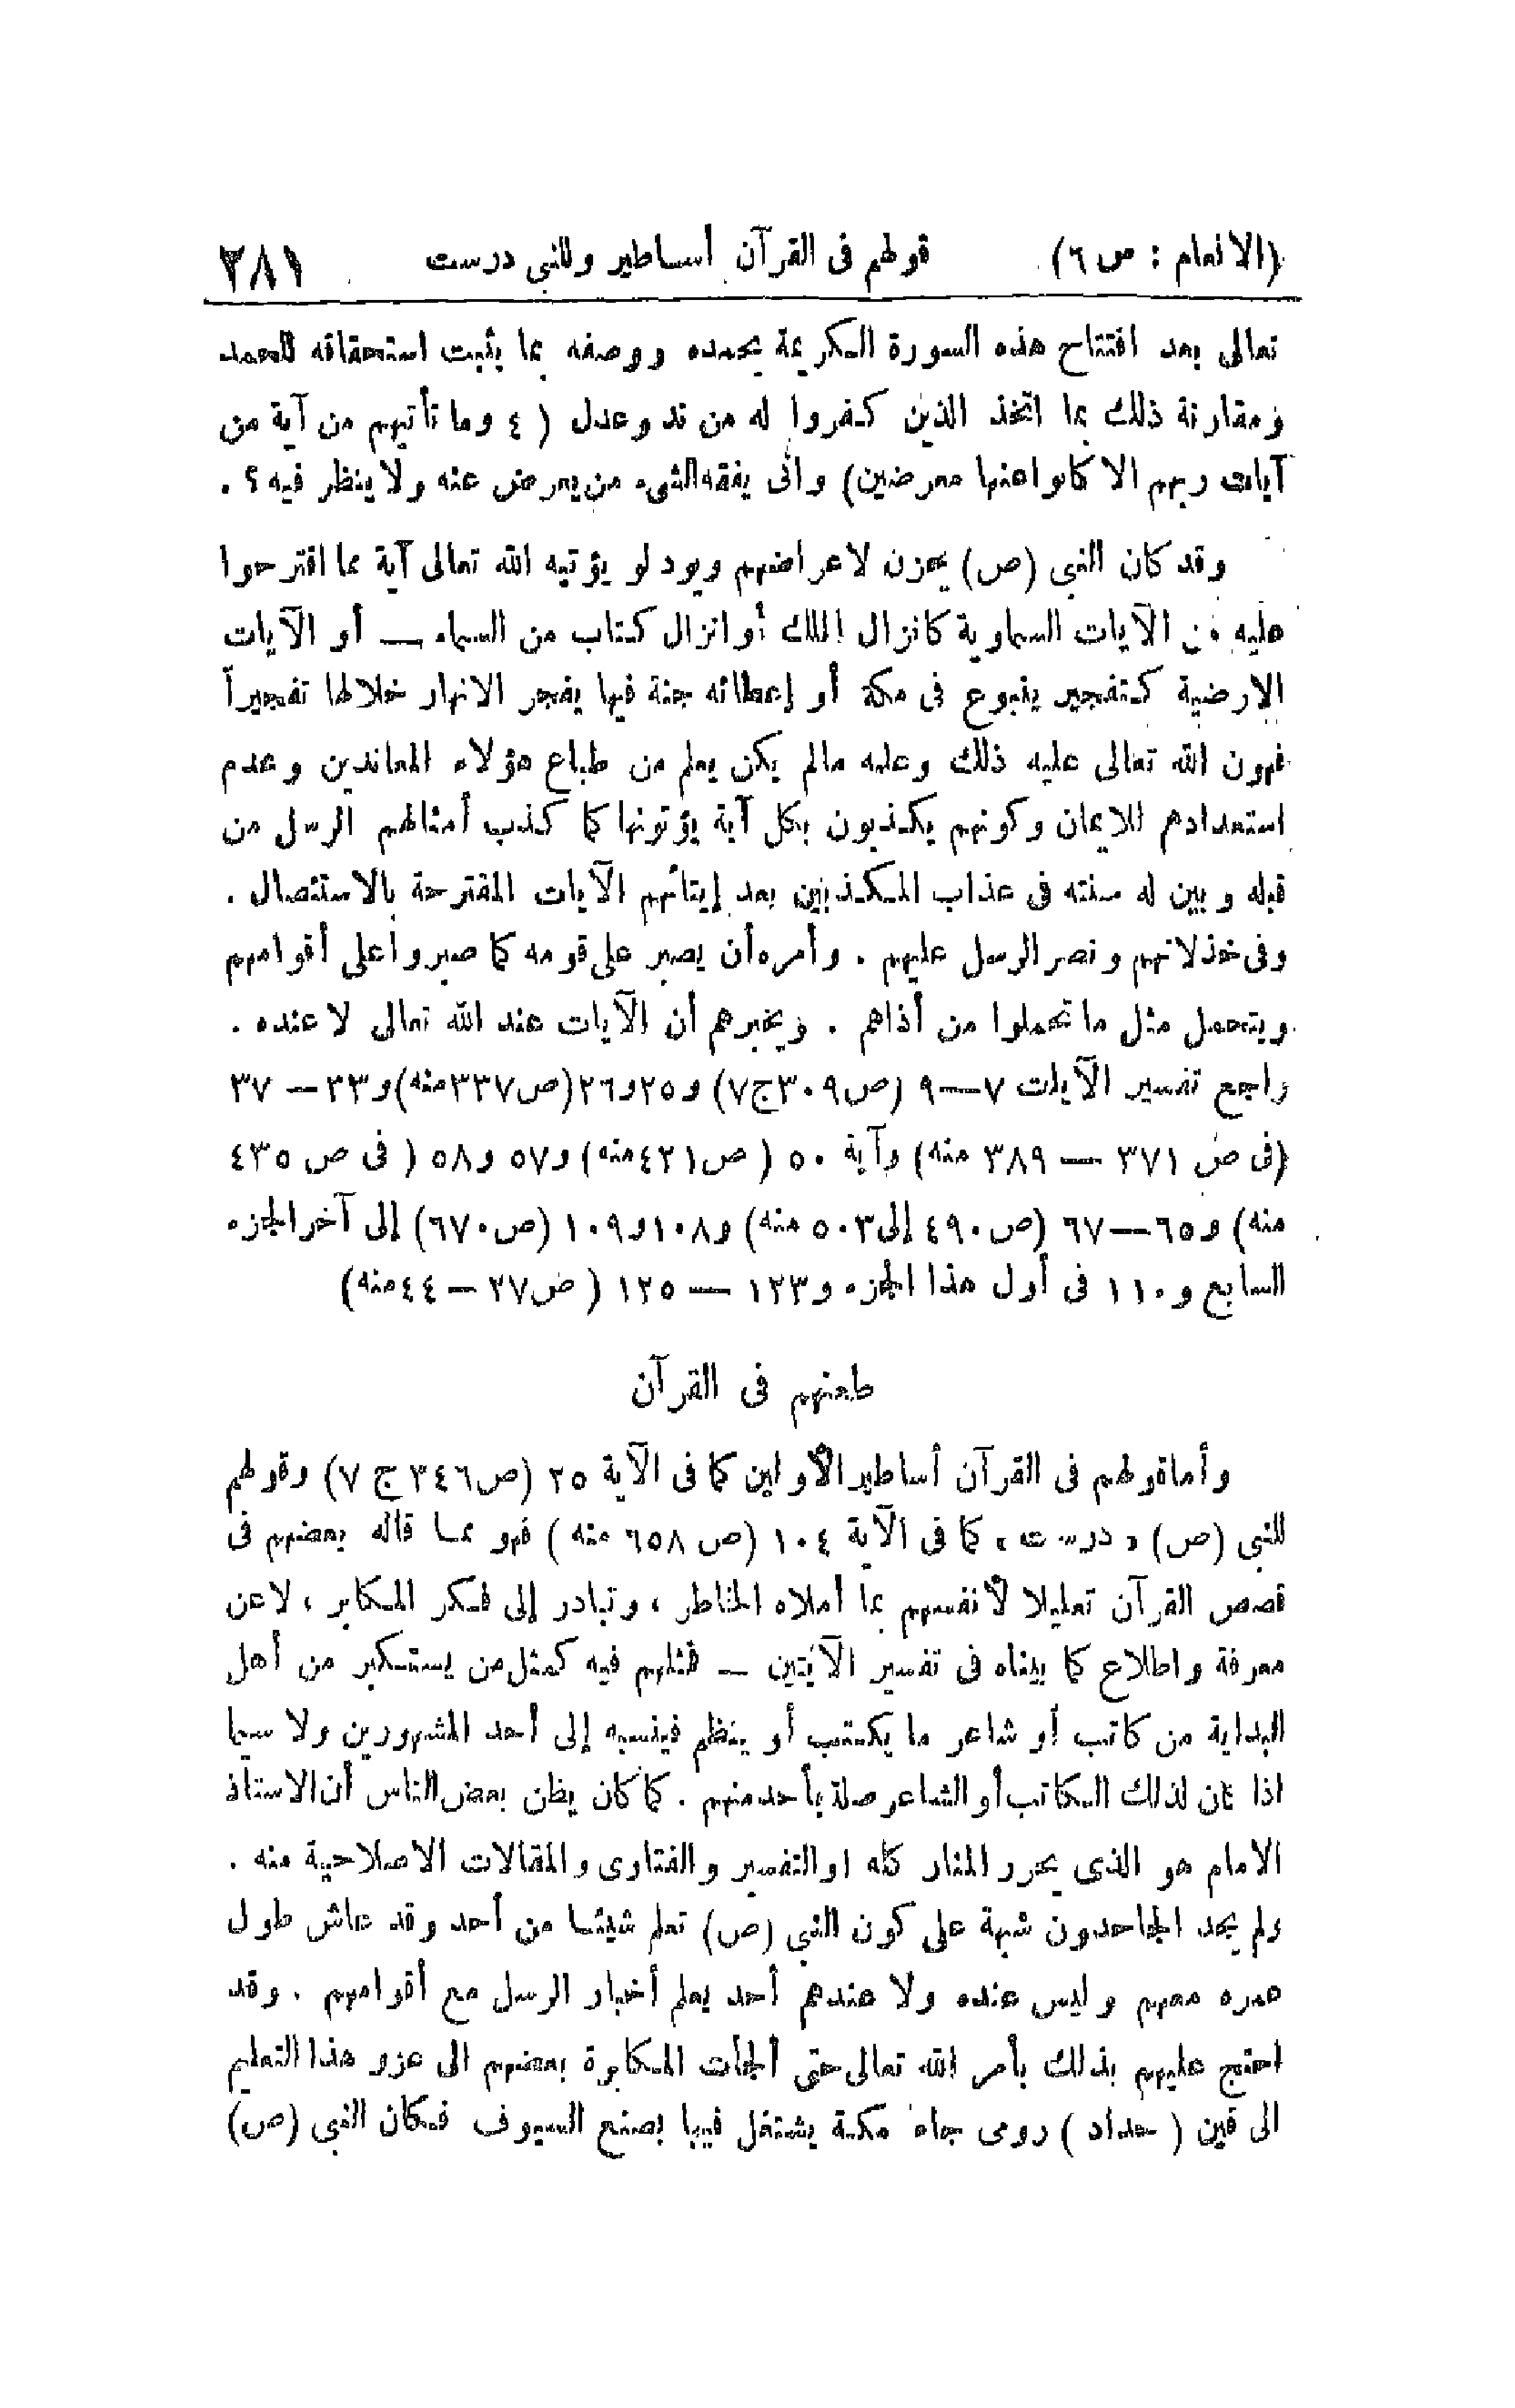 (الانعام : ص ٦) قولهم فى القرآن أساطير وللنبى درست ٢٨١
تعالى بعد افتتاح هذه السورة الكريمة بحمده ووصفه بما يثبت استحقاقه للحمد
ومقارنة ذلك بما اتخذ الذين كفروا له من ند وعدل ( ٤ وما تأتيهم من آية من
آيات ربهم الا كانوا عنها معرضين) وانى يفقه الشىء من يعرض عنه ولا ينظر فيه ؟ .
وقد كان النبى (ص) يحزن لاعراضهم ويود لو يؤتيه الله تعالى آية مما اقترحوا
عليه من الآيات السماوية كانزال الملك أو انزال كتاب من السماء — أو الآيات
الارضية كتفجير ينبوع فى مكة أو إعطائه جنة فيها يفجر الانهار خلالها تفجيراً
فهون الله تعالى عليه ذلك وعلمه مالم يكن يعلم من طباع هؤلاء المعاندين وعدم
استعدادهم للايمان وكونهم يكذبون بكل آية يؤتونها كما كذب أمثالهم الرسل من
قبله وبين له سنته فى عذاب المكذبين بعد إيتائهم الآيات المقترحة بالاستئصال .
وفى خذلانهم ونصر الرسل عليهم . وأمره أن يصبر على قومه كما صبروا على أقوامهم
ويتحمل مثل ما تحملوا من أذاهم . ويخبرهم أن الآيات عند الله تعالى لا عنده .
راجع تفسير الآيات ٧—٩ (ص٣٠٩ج٧) و٢٥و٢٦(ص٣٣٧منه)و٣٣—٣٧
(فى ص ٣٧١ — ٣٨٩ منه) وآية ٥٠ ( ص٤٢١منه) و٥٧ و٥٨ ( فى ص ٤٣٥
منه) و٦٥—٦٧ (ص٤٩٠ إلى٥٠٣ منه) و١٠٨و١٠٩ (ص٦٧٠) إلى آخر الجزء
السابع و١١٠ فى أول هذا الجزء و١٢٣ — ١٢٥ ( ص٣٧ — ٤٤منه)
طعنهم فى القرآن
وأما قولهم فى القرآن أساطير الأولين كما فى الآية ٢٥ (ص٣٤٦ ج ٧) وقولهم
للنبى (ص) « درست » كما فى الآية ١٠٤ (ص ٦٥٨ منه ) فهو مما قاله بعضهم فى
قصص القرآن تعليلا لأنفسهم بما أملاه الخاطر ، وتبادر إلى فكر المكابر ، لا عن
معرفة واطلاع كما بيناه فى تفسير الآيتين — فمثلهم فيه كمثل من يستكبر من أهل
البداية من كاتب أو شاعر ما يكتب أو ينظم فينسبه إلى أحد المشهورين ولا سيما
اذا كان لذلك الكاتب أو الشاعر صلة بأحد منهم . كما كان يظن بعض الناس أن الاستاذ
الامام هو الذى يحرر المنار كله او التفسير والفتاوى والمقالات الاصلاحية منه .
ولم يجد الجاحدون شبهة على كون النبى (ص) تعلم شيئا من أحد وقد عاش طول
عمره معهم وليس عنده ولا عندهم أحد يعلم أخبار الرسل مع أقوامهم . وقد
احتج عليهم بذلك بأمر الله تعالى حتى ألجأت المكابرة بعضهم الى عزو هذا التعليم
الى قين ( حداد ) رومى جاء مكة يشتغل فيها بصنع السيوف فكان النبى (ص)